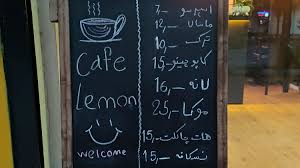 Cafe
Lemon
welcome
اسپرسو 7,—
ماسالا 12,—
ترک 10,—
کاپوچینو 15,—
لاته 16,—
موکا 25,—
هات چاکلت 15,—
نسکافه 15,—